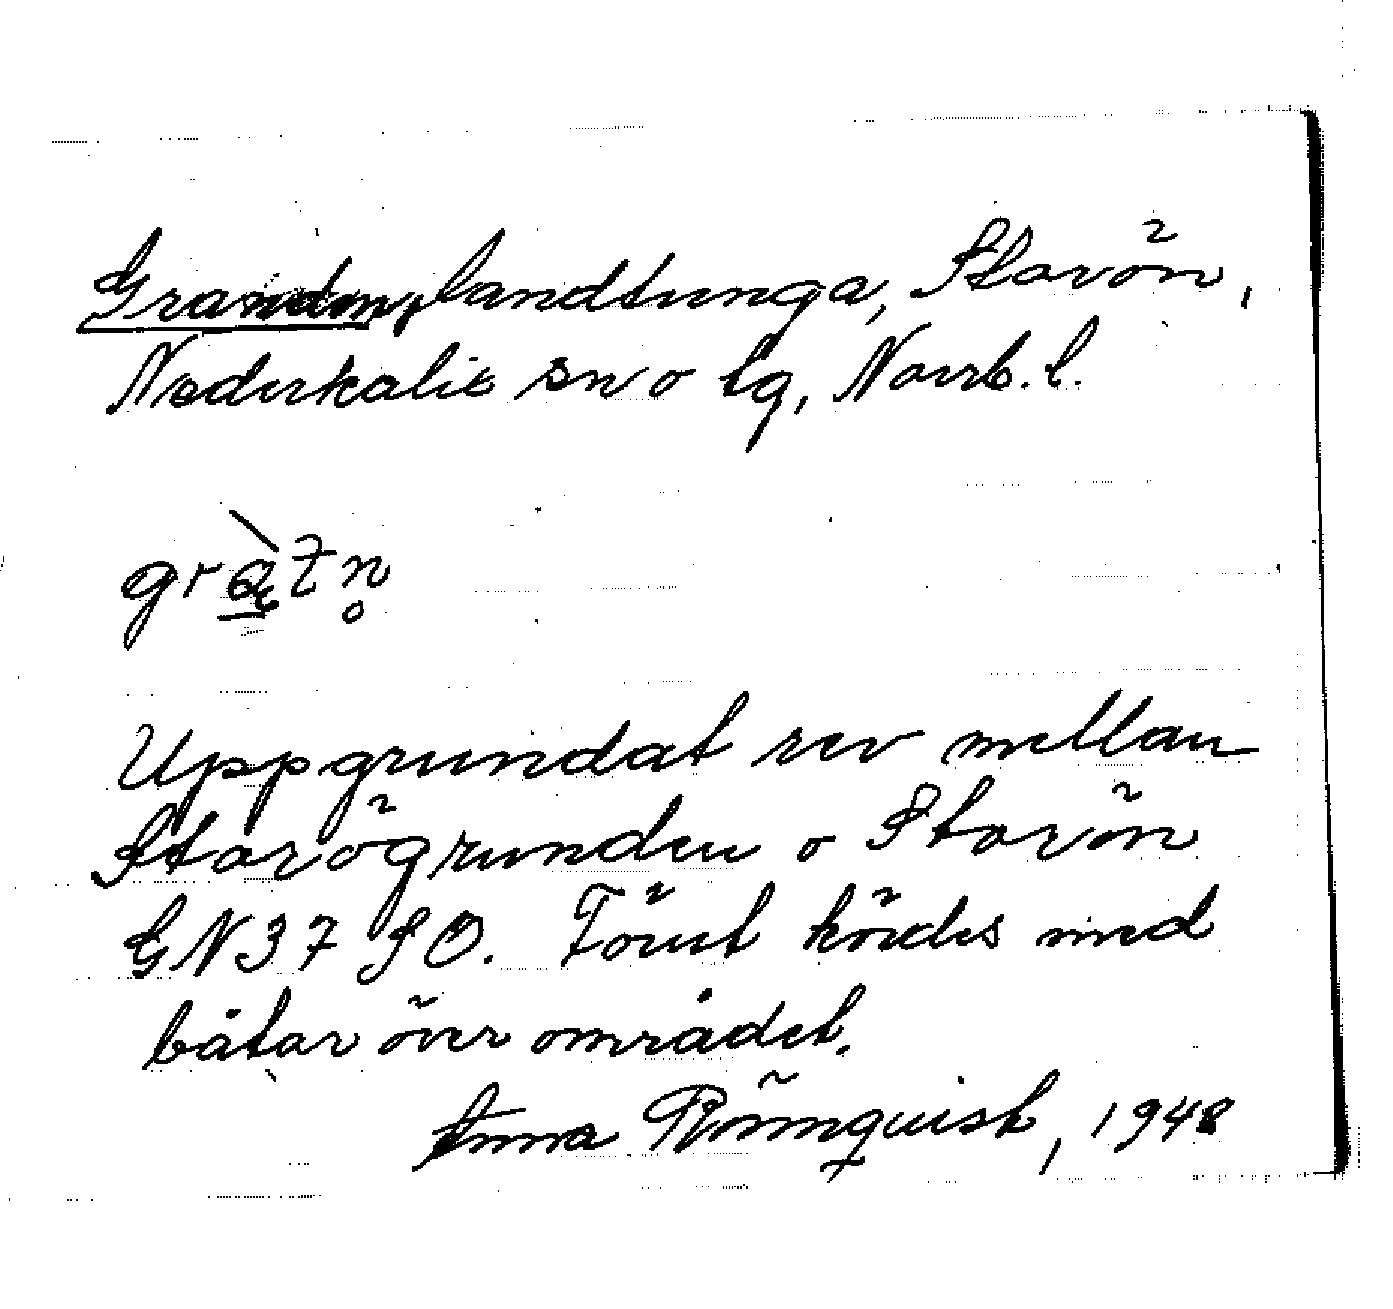 Granden, landtunga, Storön,
Nederkalix sn o tg, Norrb. l.
Uppgrundat rev mellan
Storögrunden o Storön
GN37 SO. Förut kördes med
båtar över området.
Anna Rönnquist, 1948